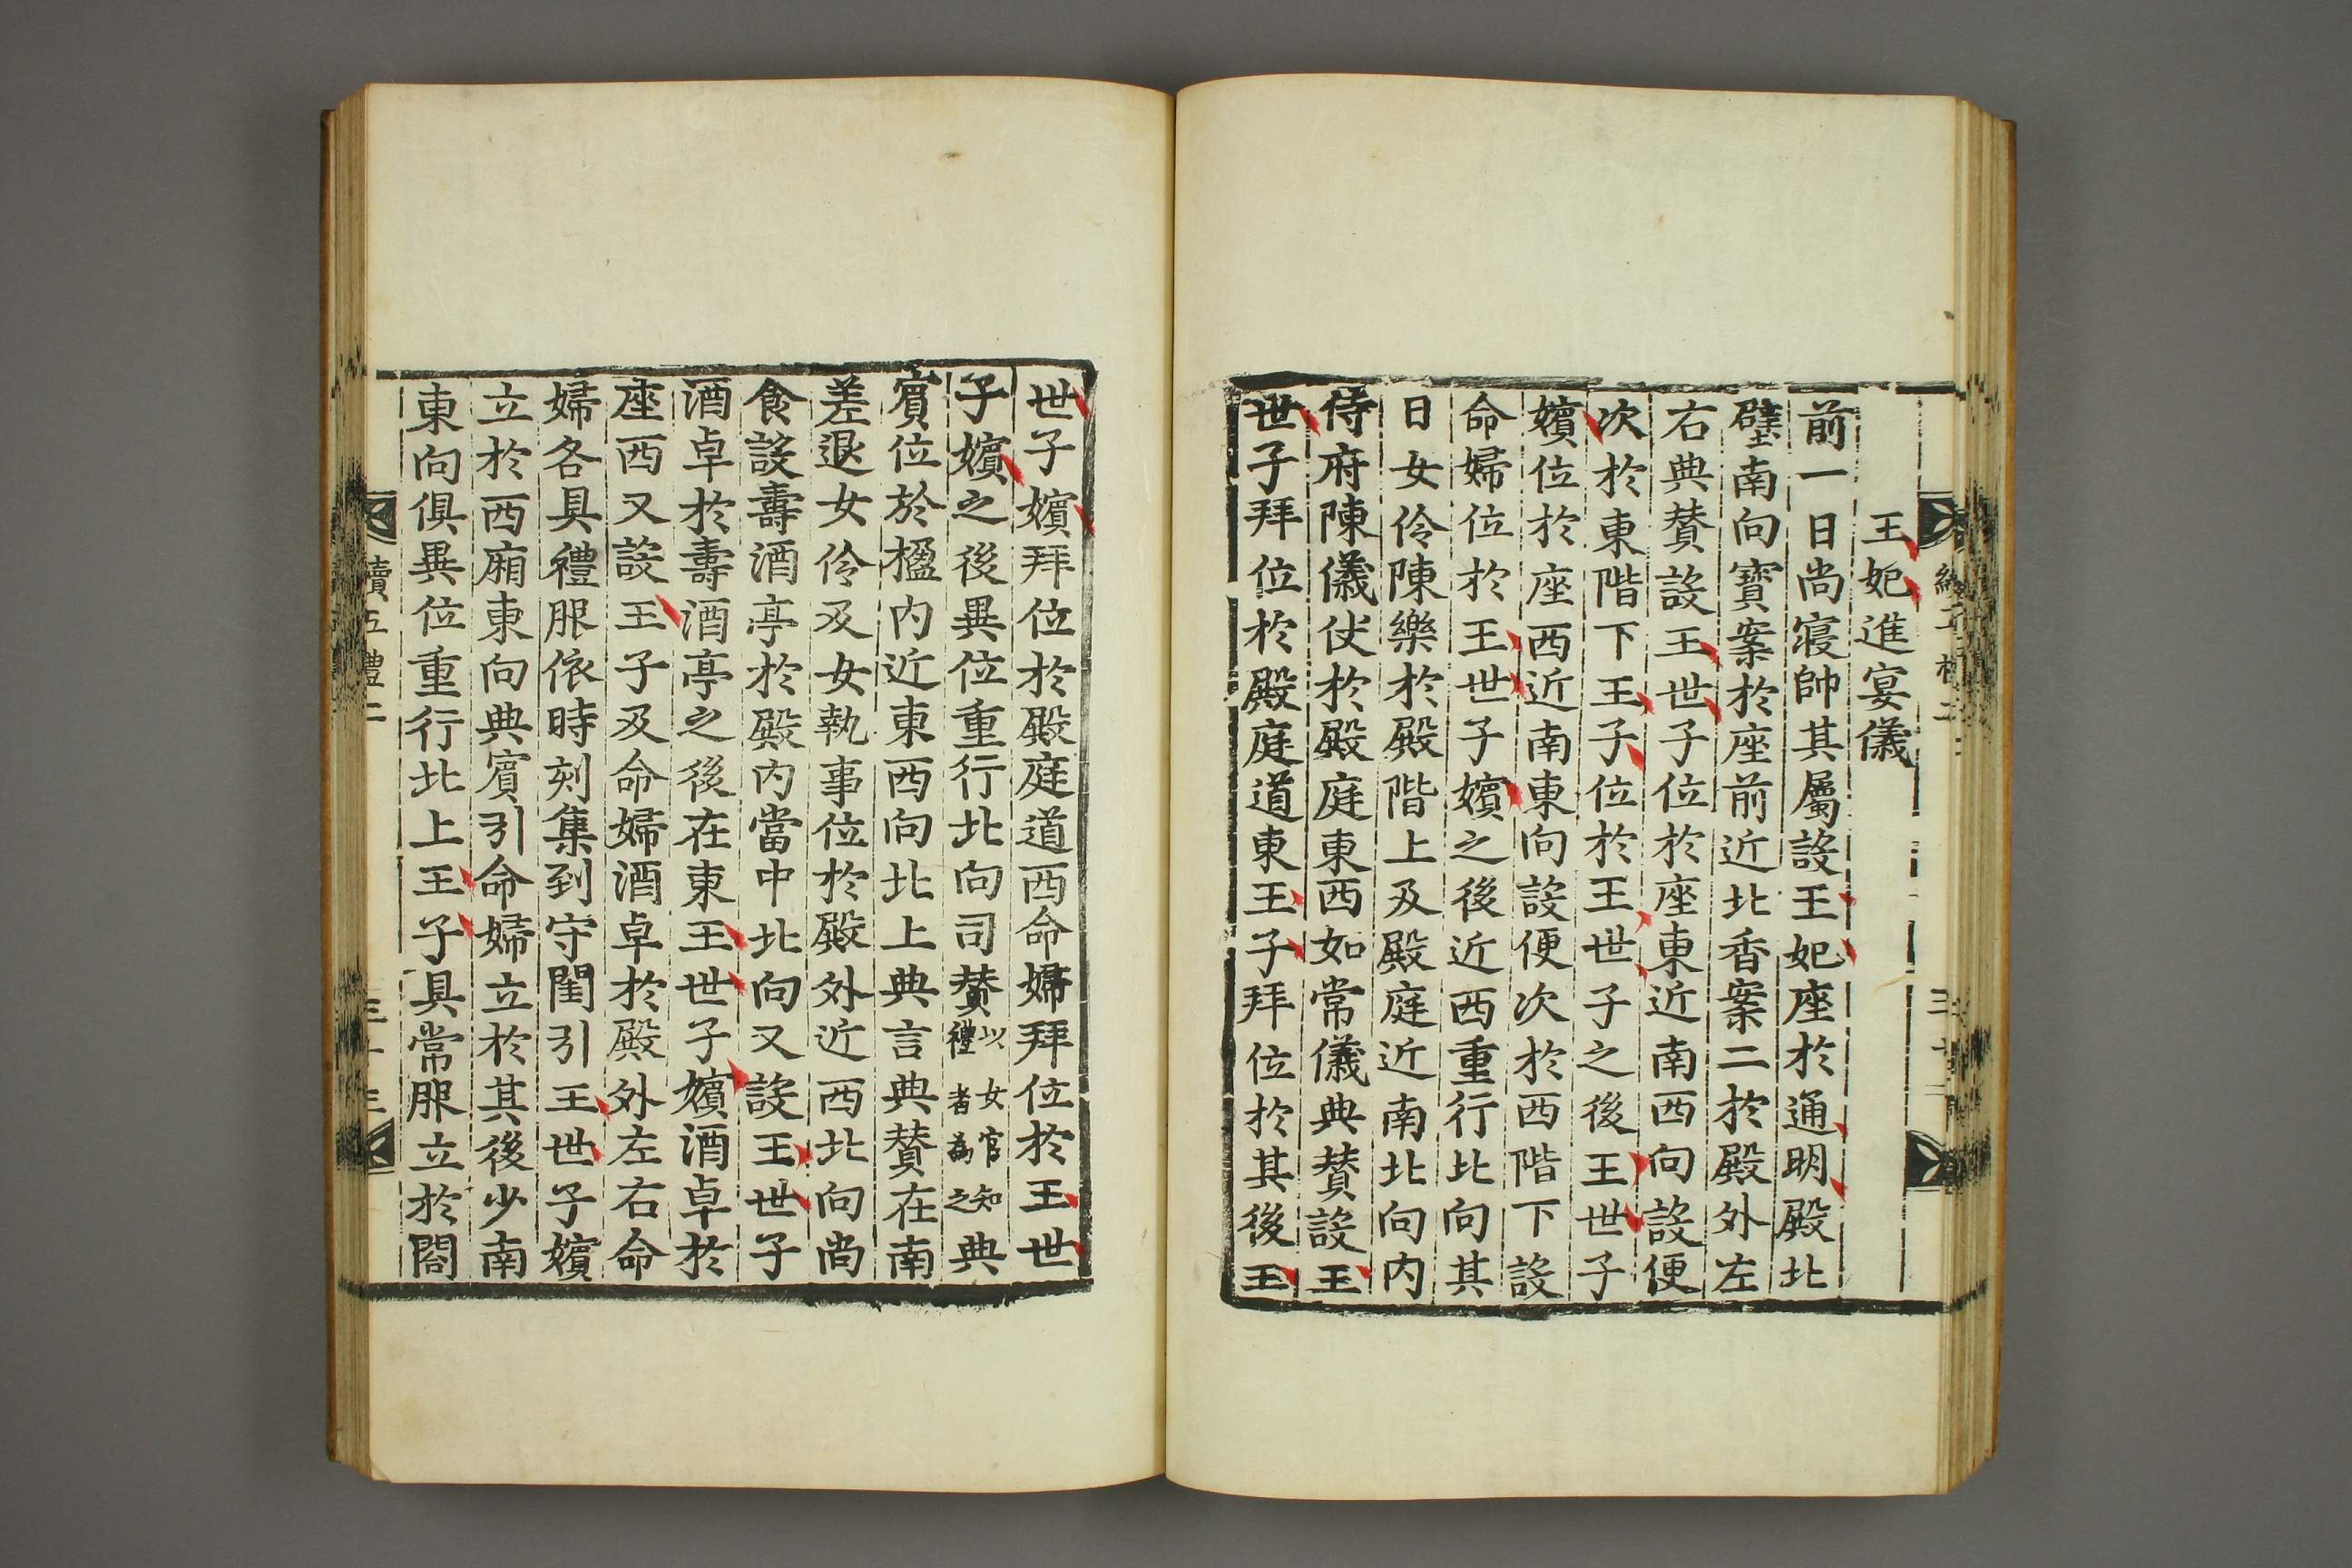 王妃進宴儀
前一日尚寢帥其屬設王妃座於通明殿北
壁南向寶案於座前近北香案二於殿外左
右典賛設王世子位於座東近南西向設便
次於東階下王子位於王世子之後王世子
嬪位於座西近南東向設便次於西階下設
命婦位於王世子嬪之後近西重行北向其
日女伶陳樂於殿階上及殿庭近南北向内
侍府陳儀仗於殿庭東西如常儀典賛設王
世子拜位於殿庭道東王子拜位於其後王
世子嬪拜位於殿庭道西命婦拜位於王世
子嬪之後異位重行北向司賛以女官知禮者為之典
賓位於楹内近東西向北上典言典賛在南
差退女伶及女執事位於殿外近西北向尚
食設壽酒亭於殿内當中北向又設王世子
酒卓於壽酒亭之後在東王世子嬪酒卓於
座西又設王子及命婦酒卓於殿外左右命
婦各具禮服依時刻集到守閨引王世子嬪
立於西廂東向典賓引命婦立於其後少南
東向俱異位重行北上王子具常服立於閤
續五禮二